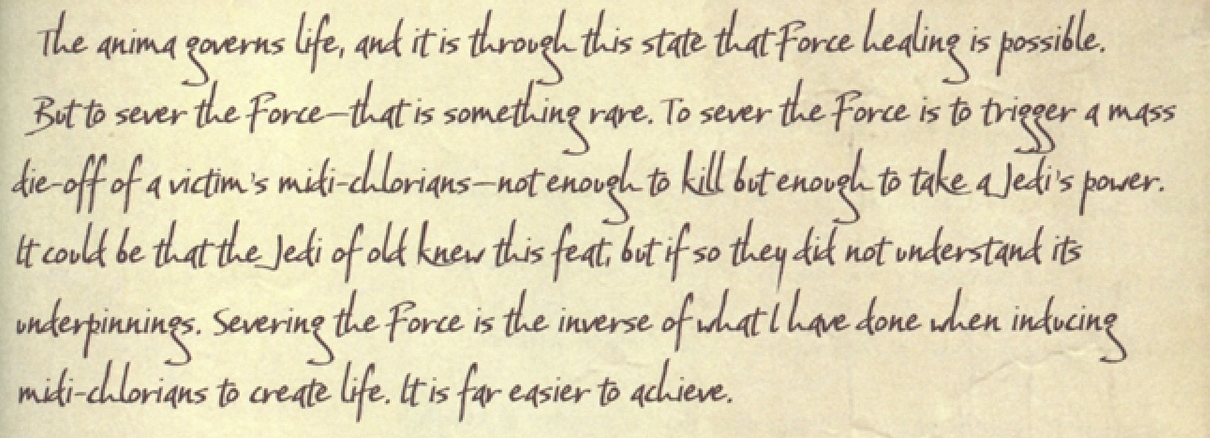 The anima governs life, and it is through this state that Force healing is possible.
But to sever the Force—that is something rare. To sever the Force is to trigger a mass
die-off of a victim's midi-chlorians—not enough to kill but enough to take a Jedi's power.
It could be that the Jedi of old knew this feat, but if so they did not understand its
underpinnings. Severing the Force is the inverse of what I have done when inducing
midi-chlorians to create life. It is far easier to achieve.